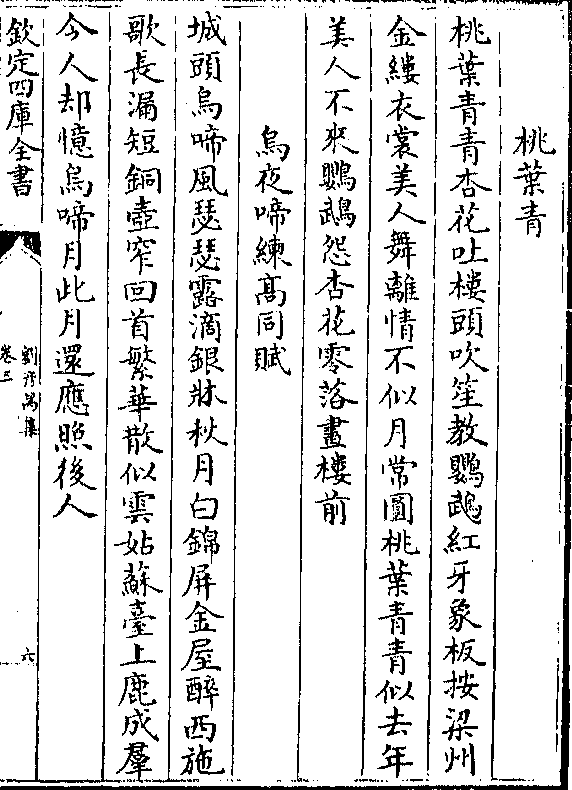 桃葉青
桃葉青青杏花吐樓頭吹笙教鸚鵡紅牙象板按梁州
金縷衣裳美人舞離情不似月常圓桃葉青青似去年
美人不來鸚鵡怨杏花零落畫樓前
烏夜啼練髙同賦
城頭烏啼風瑟瑟露滴銀牀秋月白錦屏金屋醉西施
歌長漏短銅壺窄回首繁華散似雲姑蘇臺上鹿成羣
今人却憶烏啼月此月還應照後人
欽定四庫全書
劉彦昺集
卷三
六